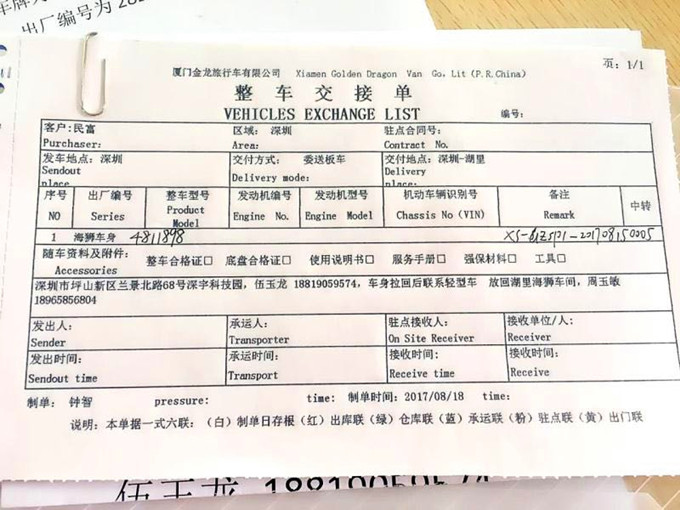 出厂编号为
厦门金龙旅行车有限公司 Xiamen Golden Dragon Van Go. Lit (P.R.China)
页: 1/1
整车交接单
VEHICLES EXCHANGE LIST
编号:
客户:民富 区域: 深圳 驻点合同号:
Purchaser: Area: Contract No.
发车地点: 深圳 交付方式: 委送板车 交付地点: 深圳-湖里
Sendout Delivery mode: Delivery
place place:
序号 出厂编号 整车型号 发动机编号 发动机型号 机动车辆识别号 备注 中转
NO Series Product Model Engine No. Engine Model Chassis No (VIN) Remark
1 海狮车身 4811898
随车资料及附件: 整车合格证□ 底盘合格证□ 使用说明书□ 服务手册□ 强保材料□ 工具□
Accessories
深圳市坪山新区兰景北路68号深宇科技园, 伍玉龙 18819059574, 车身拉回后联系轻型车 放回湖里海狮车间, 周玉敏
18965856804
发出人: 承运人: 驻点接收人: 接收单位/人:
Sender Transporter On Site Receiver Receiver
发出时间: 承运时间: 接收时间: 接收时间:
Sendout time Transport Receive time Receive
制单: 钟智 pressure: time: 制单时间: 2017/08/18 time:
说明: 本单据一式六联: (白) 制单日存根 (红) 出库联 (绿) 仓库联 (蓝) 承运联 (粉) 驻点联 (黄) 出门联
伍玉龙 18819059574